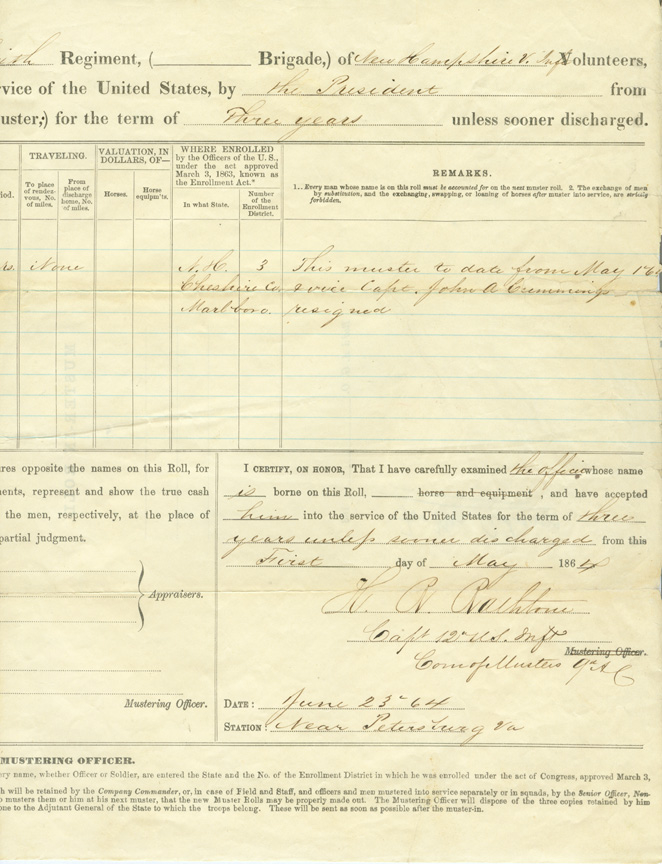 Regiment, ( Brigade,) of New Hampshire V. Inft Volunteers,
rvice of the United States, by the President from
uster,) for the term of Three years unless sooner discharged.
TRAVELING.
VALUATION, IN DOLLARS, OF—
WHERE ENROLLED
by the Officers of the U. S., under the act approved March 3, 1863, known as the Enrollment Act.*
REMARKS.
1.. Every man whose name is on this roll must be accounted for on the next muster roll. 2. The exchange of men
by substitution, and the exchanging, swapping, or loaning of horses after muster into service, are strictly
forbidden.
riod.
To place of rendezvous, No. of miles.
From place of discharge home, No. of miles.
Horses.
Horse equipm'ts.
In what State.
Number of the Enrollment District.
rs. None N. H. 3 This muster to date from May 1" 64
Cheshire Co. vice Capt. John A Cummings
Marlboro. resigned
ures opposite the names on this Roll, for
ments, represent and show the true cash
the men, respectively, at the place of
partial judgment.
Appraisers.
Mustering Officer.
I CERTIFY, ON HONOR, That I have carefully examined the officer whose name
is borne on this Roll, horse and equipment , and have accepted
him into the service of the United States for the term of three
years unless sooner discharged from this
First day of May 1864
H. R. Rathbone
Capt 12" U.S. Inft
Mustering Officer.
Com of Musters 9" A C
DATE: June 23" 64
STATION: Near Petersburg Va
MUSTERING OFFICER.
ery name, whether Officer or Soldier, are entered the State and the No. of the Enrollment District in which he was enrolled under the act of Congress, approved March 3,
h will be retained by the Company Commander, or, in case of Field and Staff, and officers and men mustered into service separately or in squads, by the Senior Officer, Non-
o musters them or him at his next muster, that the new Muster Rolls may be properly made out. The Mustering Officer will dispose of the three copies retained by him
one to the Adjutant General of the State to which the troops belong. These will be sent as soon as possible after the muster-in.